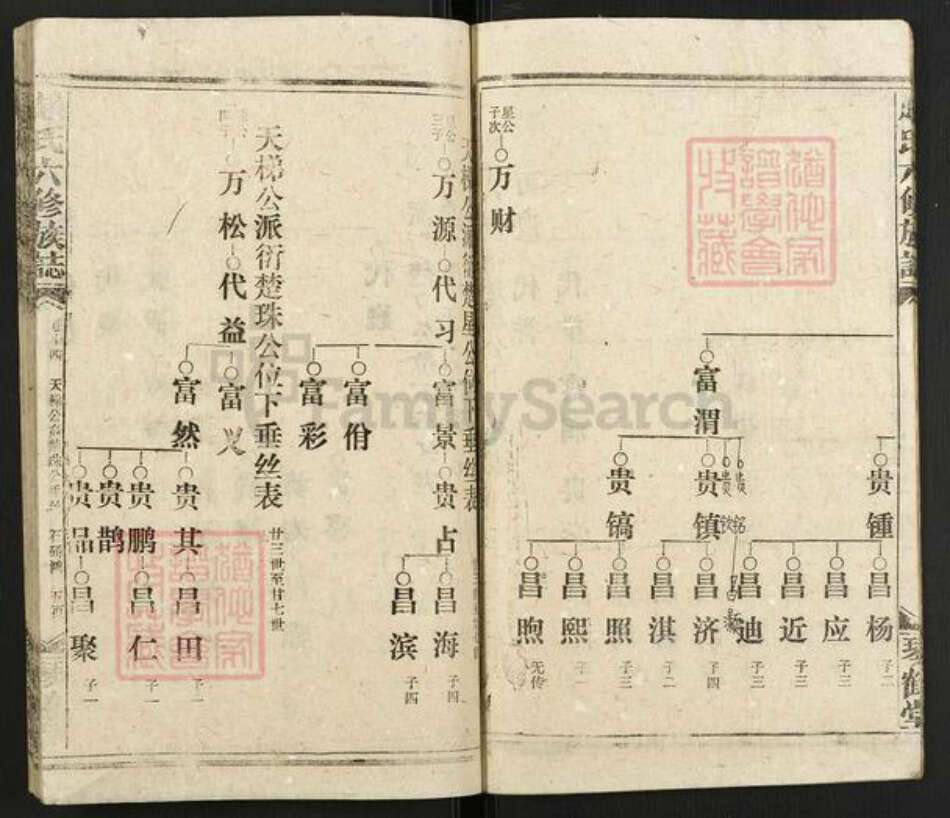 星公
次子
万财
富渭
贵锺
贵镇
贵镐
昌杨 子二
昌应 子二
昌近 子三
昌迪 子三
昌济 子四
昌淇 子二
昌照 子三
昌熙 子一
昌煦 无传
鹤堂
猶他家譜學會收藏
万源
代习
富景
富佾
富彩
贵占
昌海 子四
昌滨 子四
天梯公派衍楚珠公位下垂丝表 廿三世至廿七世
万松
代益
富义
富然
贵其
贵鹏
贵鹊
贵品
昌田 子一
昌仁 子一
昌聚 子一
氏六修族誌
猶他家譜學會收藏
FamilySearch